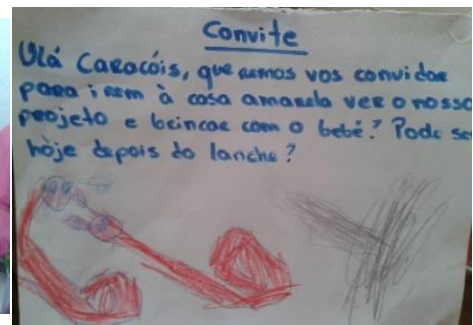 Convite
Olá Caracóis, queremos vos convidar
para irem à casa amarela ver o nosso
projeto e brincar com o bebé? Pode se
hoje depois do lanche?